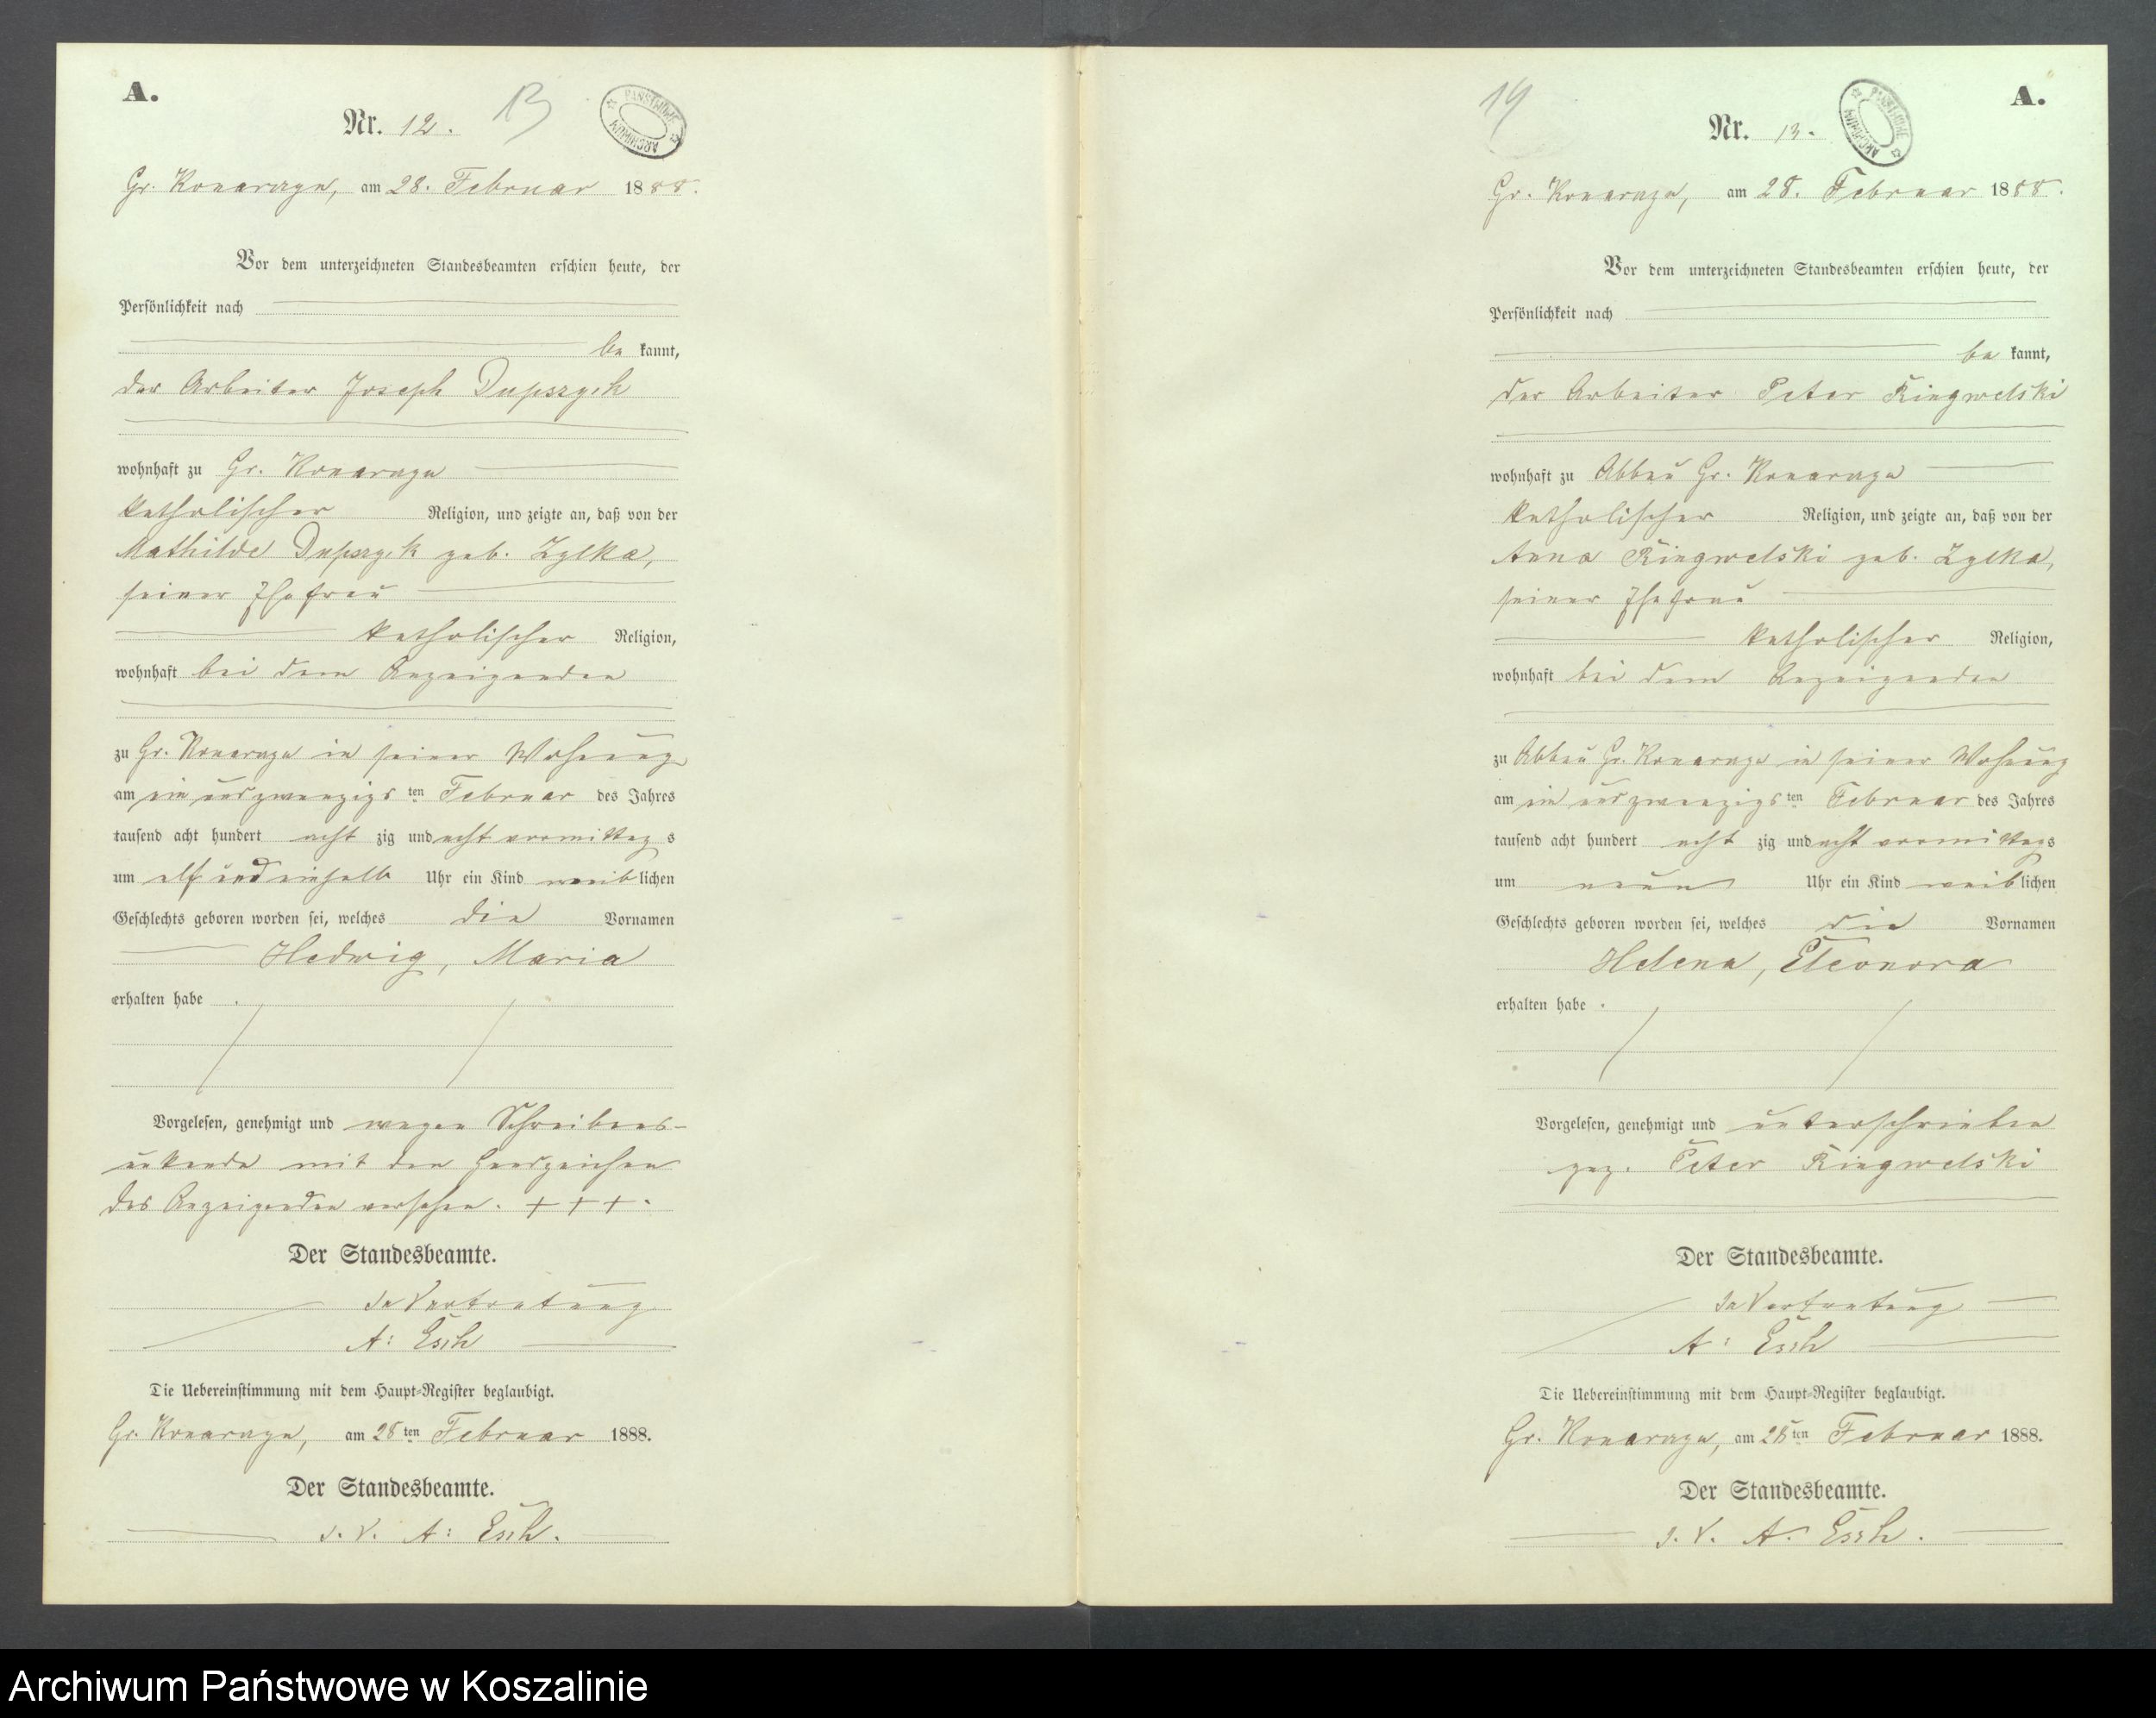 A.
Nr. 12. 13
PAŃSTWOWE ARCHIWUM
Gr. Konarczyn, am 28. Februar 1888.
Vor dem unterzeichneten Standesbeamten erschien heute, der
Persönlichkeit nach
be kannt,
der Arbeiter Joseph Dupszych
wohnhaft zu Gr. Konarczyn
katholischer Religion, und zeigte an, daß von der
Mathilde geb. Zylka,
seiner Ehefrau
katholischer Religion,
wohnhaft bei dem Anzeigenden
zu Gr. Konarczyn in seiner Wohnung
am ein und zwanzigs ten Februar des Jahres
tausend acht hundert acht zig und acht vormittag s
um elf und einhalb Uhr ein Kind weib lichen
Geschlechts geboren worden sei, welches die Vornamen
Hedwig, Maria
erhalten habe.
Vorgelesen, genehmigt und wegen Schreibens-
unkunde mit den Handzeichen
des Anzeigenden versehen. + + + .
Der Standesbeamte.
In Vertretung
A: Esch
Die Uebereinstimmung mit dem Haupt-Register beglaubigt.
Gr. Konarczyn, am 28 ten Februar 1888.
Der Standesbeamte.
I. V. A: Esch.
14 A.
Nr. 13.
PAŃSTWOWE ARCHIWUM
Gr. Konarczyn, am 28. Februar 1888.
Vor dem unterzeichneten Standesbeamten erschien heute, der
Persönlichkeit nach
be kannt,
der Arbeiter Peter Ringwelski
wohnhaft zu Abbau Gr. Konarczyn
katholischer Religion, und zeigte an, daß von der
Anna Ringwelski geb. Zylka,
seiner Ehefrau
katholischer Religion,
wohnhaft bei dem Anzeigenden
zu Abbau Gr. Konarczyn in seiner Wohnung
am ein und zwanzigs ten Februar des Jahres
tausend acht hundert acht zig und acht vormittags
um neun Uhr ein Kind weib lichen
Geschlechts geboren worden sei, welches die Vornamen
Helena, Eleonora
erhalten habe.
Vorgelesen, genehmigt und unterschrieben
gez. Peter Ringwelski
Der Standesbeamte.
In Vertretung
A: Esch
Die Uebereinstimmung mit dem Haupt-Register beglaubigt.
Gr. Konarczyn, am 28 ten Februar 1888.
Der Standesbeamte.
I. V. A. Esch.
Archiwum Państwowe w Koszalinie